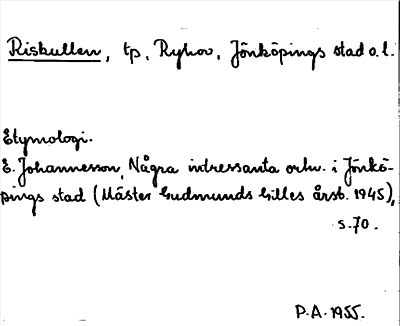 Riskullen, tp, Ryhov, Jönköpings stad o.l.
Etymologi.
E. Johannesson, Några intressanta ortn. i Jönkö-
pings stad (Mäster Gudmunds Gilles årsb. 1945),
s. 70.
P.A. 1955.